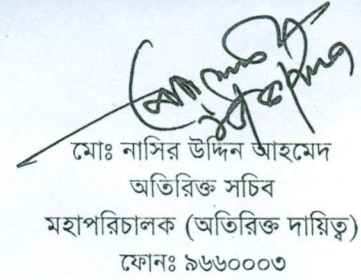 মোঃ নাসির উদ্দিন আহমেদ
অতিরিক্ত সচিব
মহাপরিচালক (অতিরিক্ত দায়িত্ব)
ফোনঃ ৯৬৬০০০৩